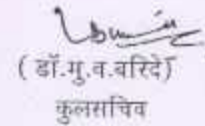 ( डॉ.मु.व.बरिदे)
कुलसचिव